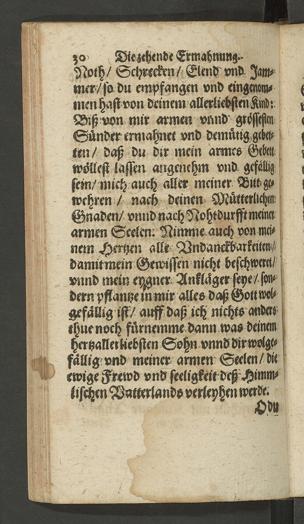 30 Die zehende Ermahnung.
Noth / Schrecken / Elend vnd Jam-
mer / so du empfangen vnd eingenom-
men hast von deinem allerliebsten Kind:
Biß von mir armen vnnd grössesten
Sünder ermahnet vnd demütig gebet-
ten / daß du dir mein armes Gebett
wöllest lassen angenehm vnd gefällig
sein / mich auch aller meiner Bitt ge-
wehren / nach deinen Mütterlichen
Gnaden / vnnd nach Nohtdurfft meiner
armen Seelen: Nimme auch von mei-
nem Hertzen alle Vndanckbarkeiten /
damit mein Gewissen nicht beschweret /
vnnd mein eygner Ankläger seye / son-
dern pflantze in mir alles daß Gott wol-
gefällig ist / auff daß ich nichts anders
thue noch fürnemme dann was deinem
hertzallerliebsten Sohn vnnd dir wolge-
fällig vnd meiner armen Seelen / die
ewige Frewd vnd seeligkeit deß Himm-
lischen Vatterlands verleyhen werde.